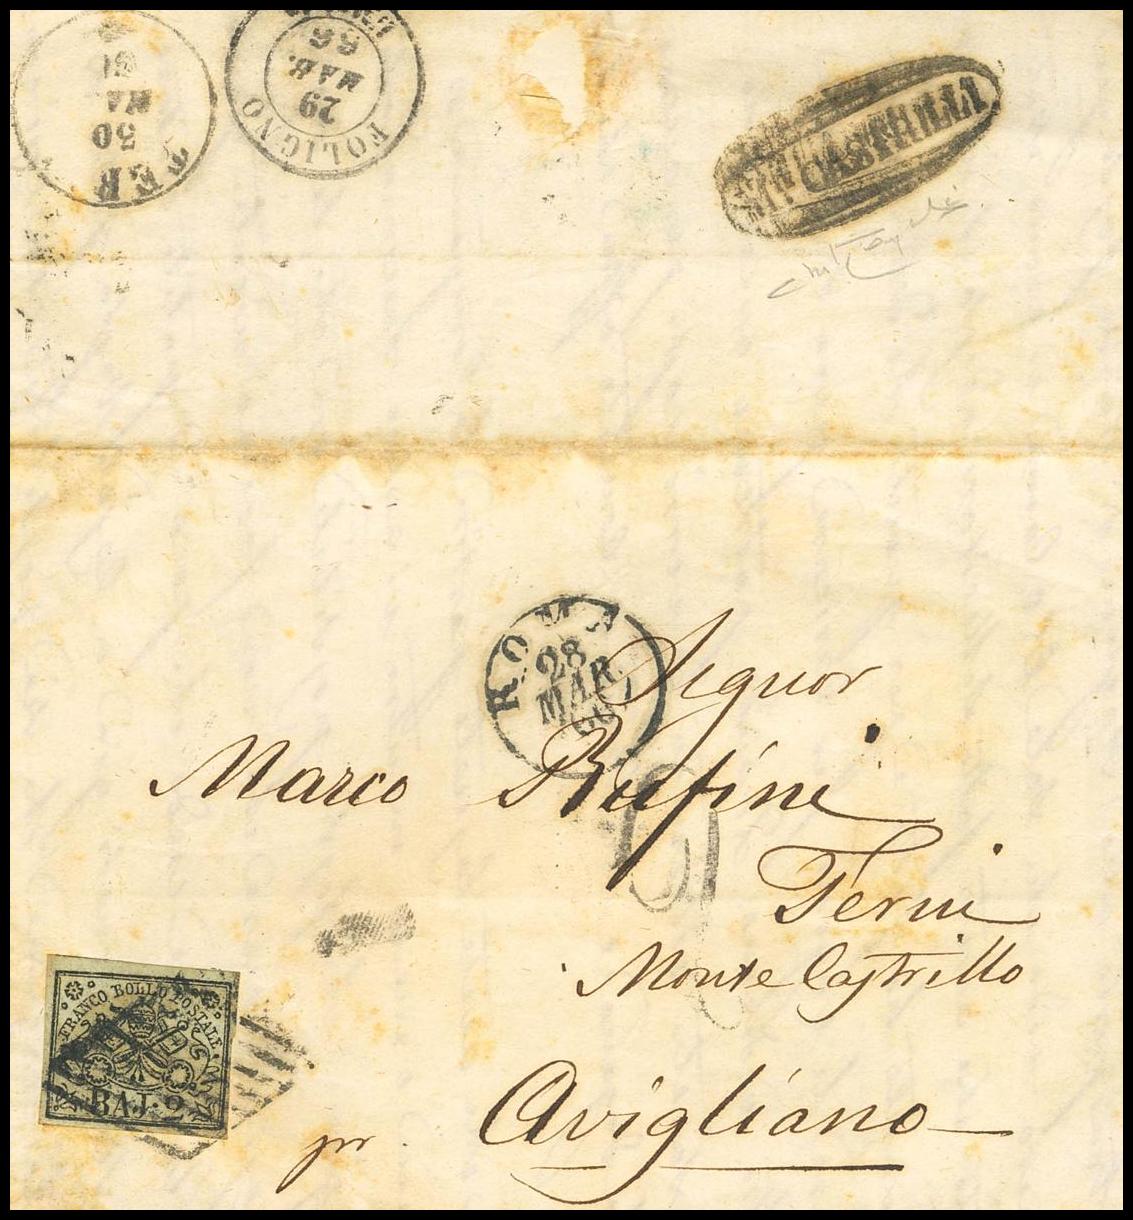 TER
30
MA
61
FOLIGNO
29
MAR.
66
ROMA
28
MAR
66
Signor
Marco Rufini
Terni
Monte Castrillo
pr Avigliano
FRANCO BOLLO POSTALE
BAJ. 2